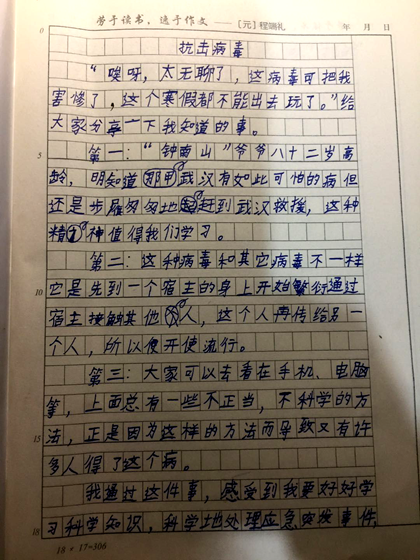 劳于读书，逸于作文 ——［元］程端礼 年 月 日
0
抗击病毒
“唉呀，太无聊了，这病毒可把我
害惨了，这个寒假都不能出去玩了。”给
大家分享一下我知道的事。
5
第一：“钟南山”爷爷八十二岁高
龄，明知道那武汉有如此可怕的病但
还是步履匆匆地赶到武汉救援，这种
精神值得我们学习。
第二：这种病毒和其它病毒不一样
10 它是先到一个宿主的身上开始繁衍通过
宿主接触其他人，这个人再传给另一
个人，所以便开使流行。
第三：大家可以去看在手机、电脑
等，上面总有一些不正当，不科学的方
15 法，正是因为这样的方法而导致又有许
多人得了这个病。
我通过这件事，感受到我要好好学
18 习科学知识，科学地处理应急突发事件，
18 * 17=306